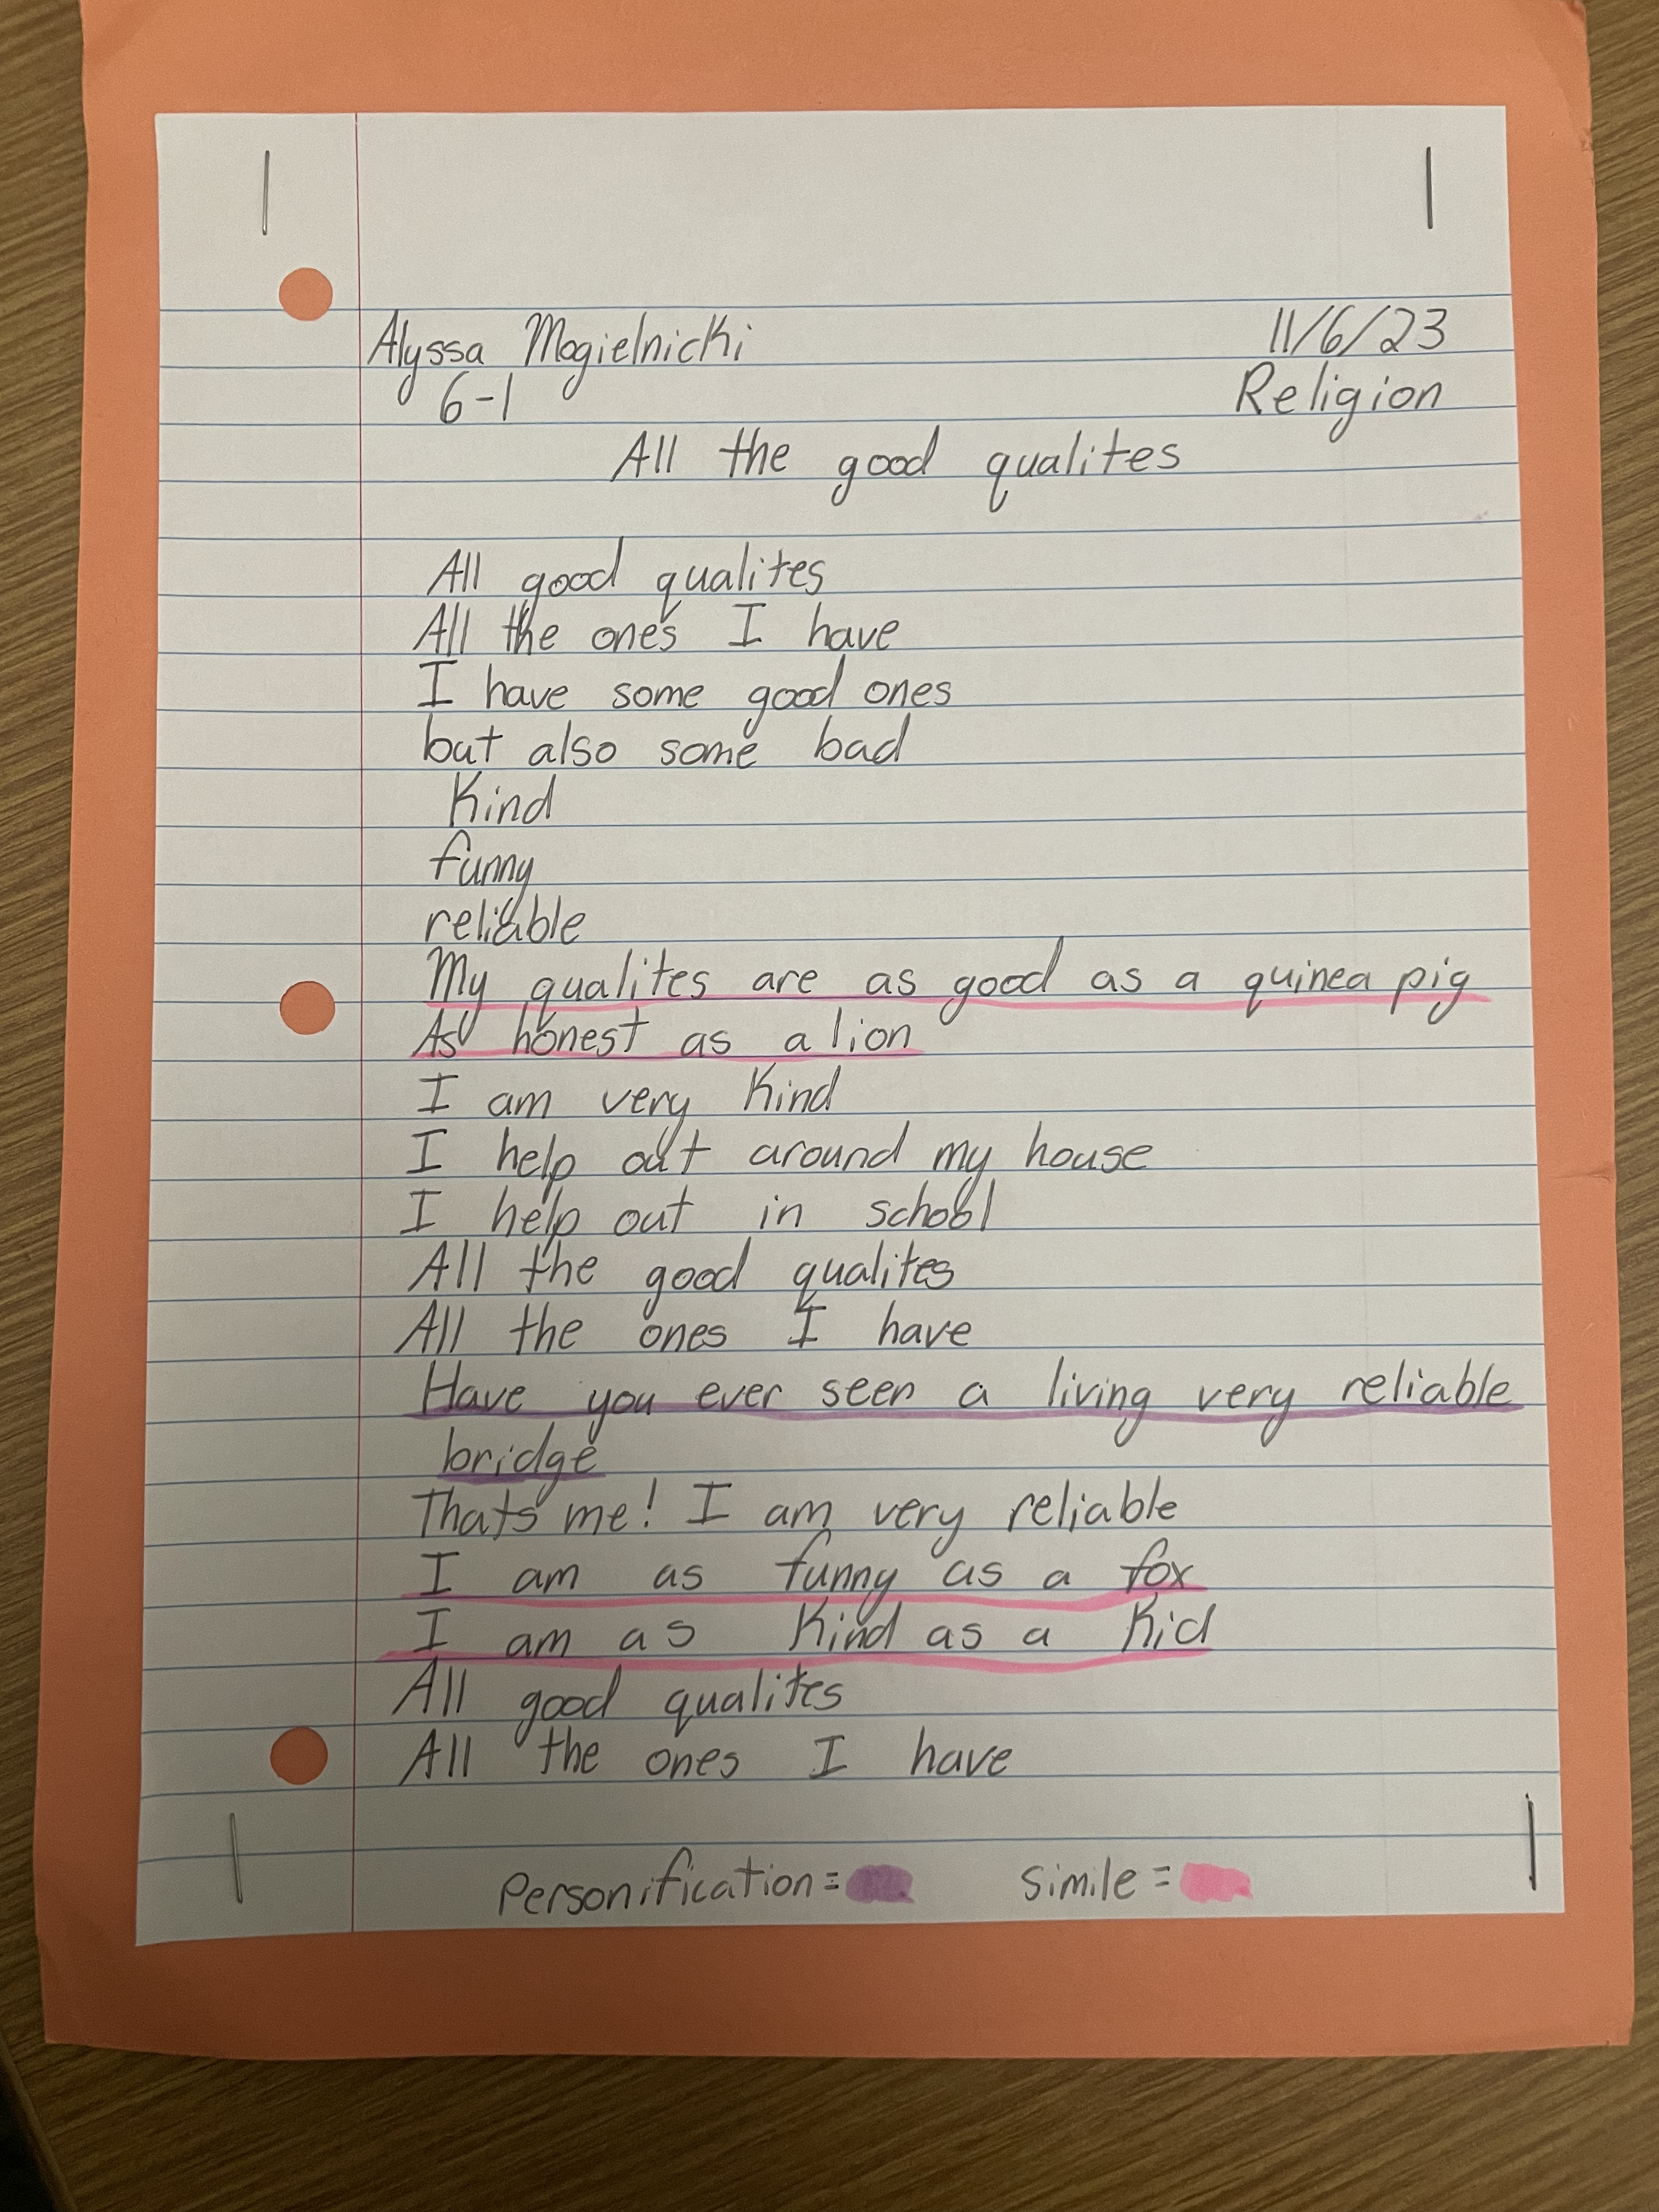 Alyssa Mogielnicki 11/6/23
6-1 Religion
All the good qualites
All good qualites
All the ones I have
I have some good ones
but also some bad
Kind
funny
reliable
My qualites are as good as a quinea pig
As honest as a lion
I am very kind
I help out around my house
I help out in school
All the good qualites
All the ones I have
Have you ever seen a living very reliable
bridge
Thats me! I am very reliable
I am as funny as a fox
I am as kind as a kid
All good qualites
All the ones I have
Personification= Simile=